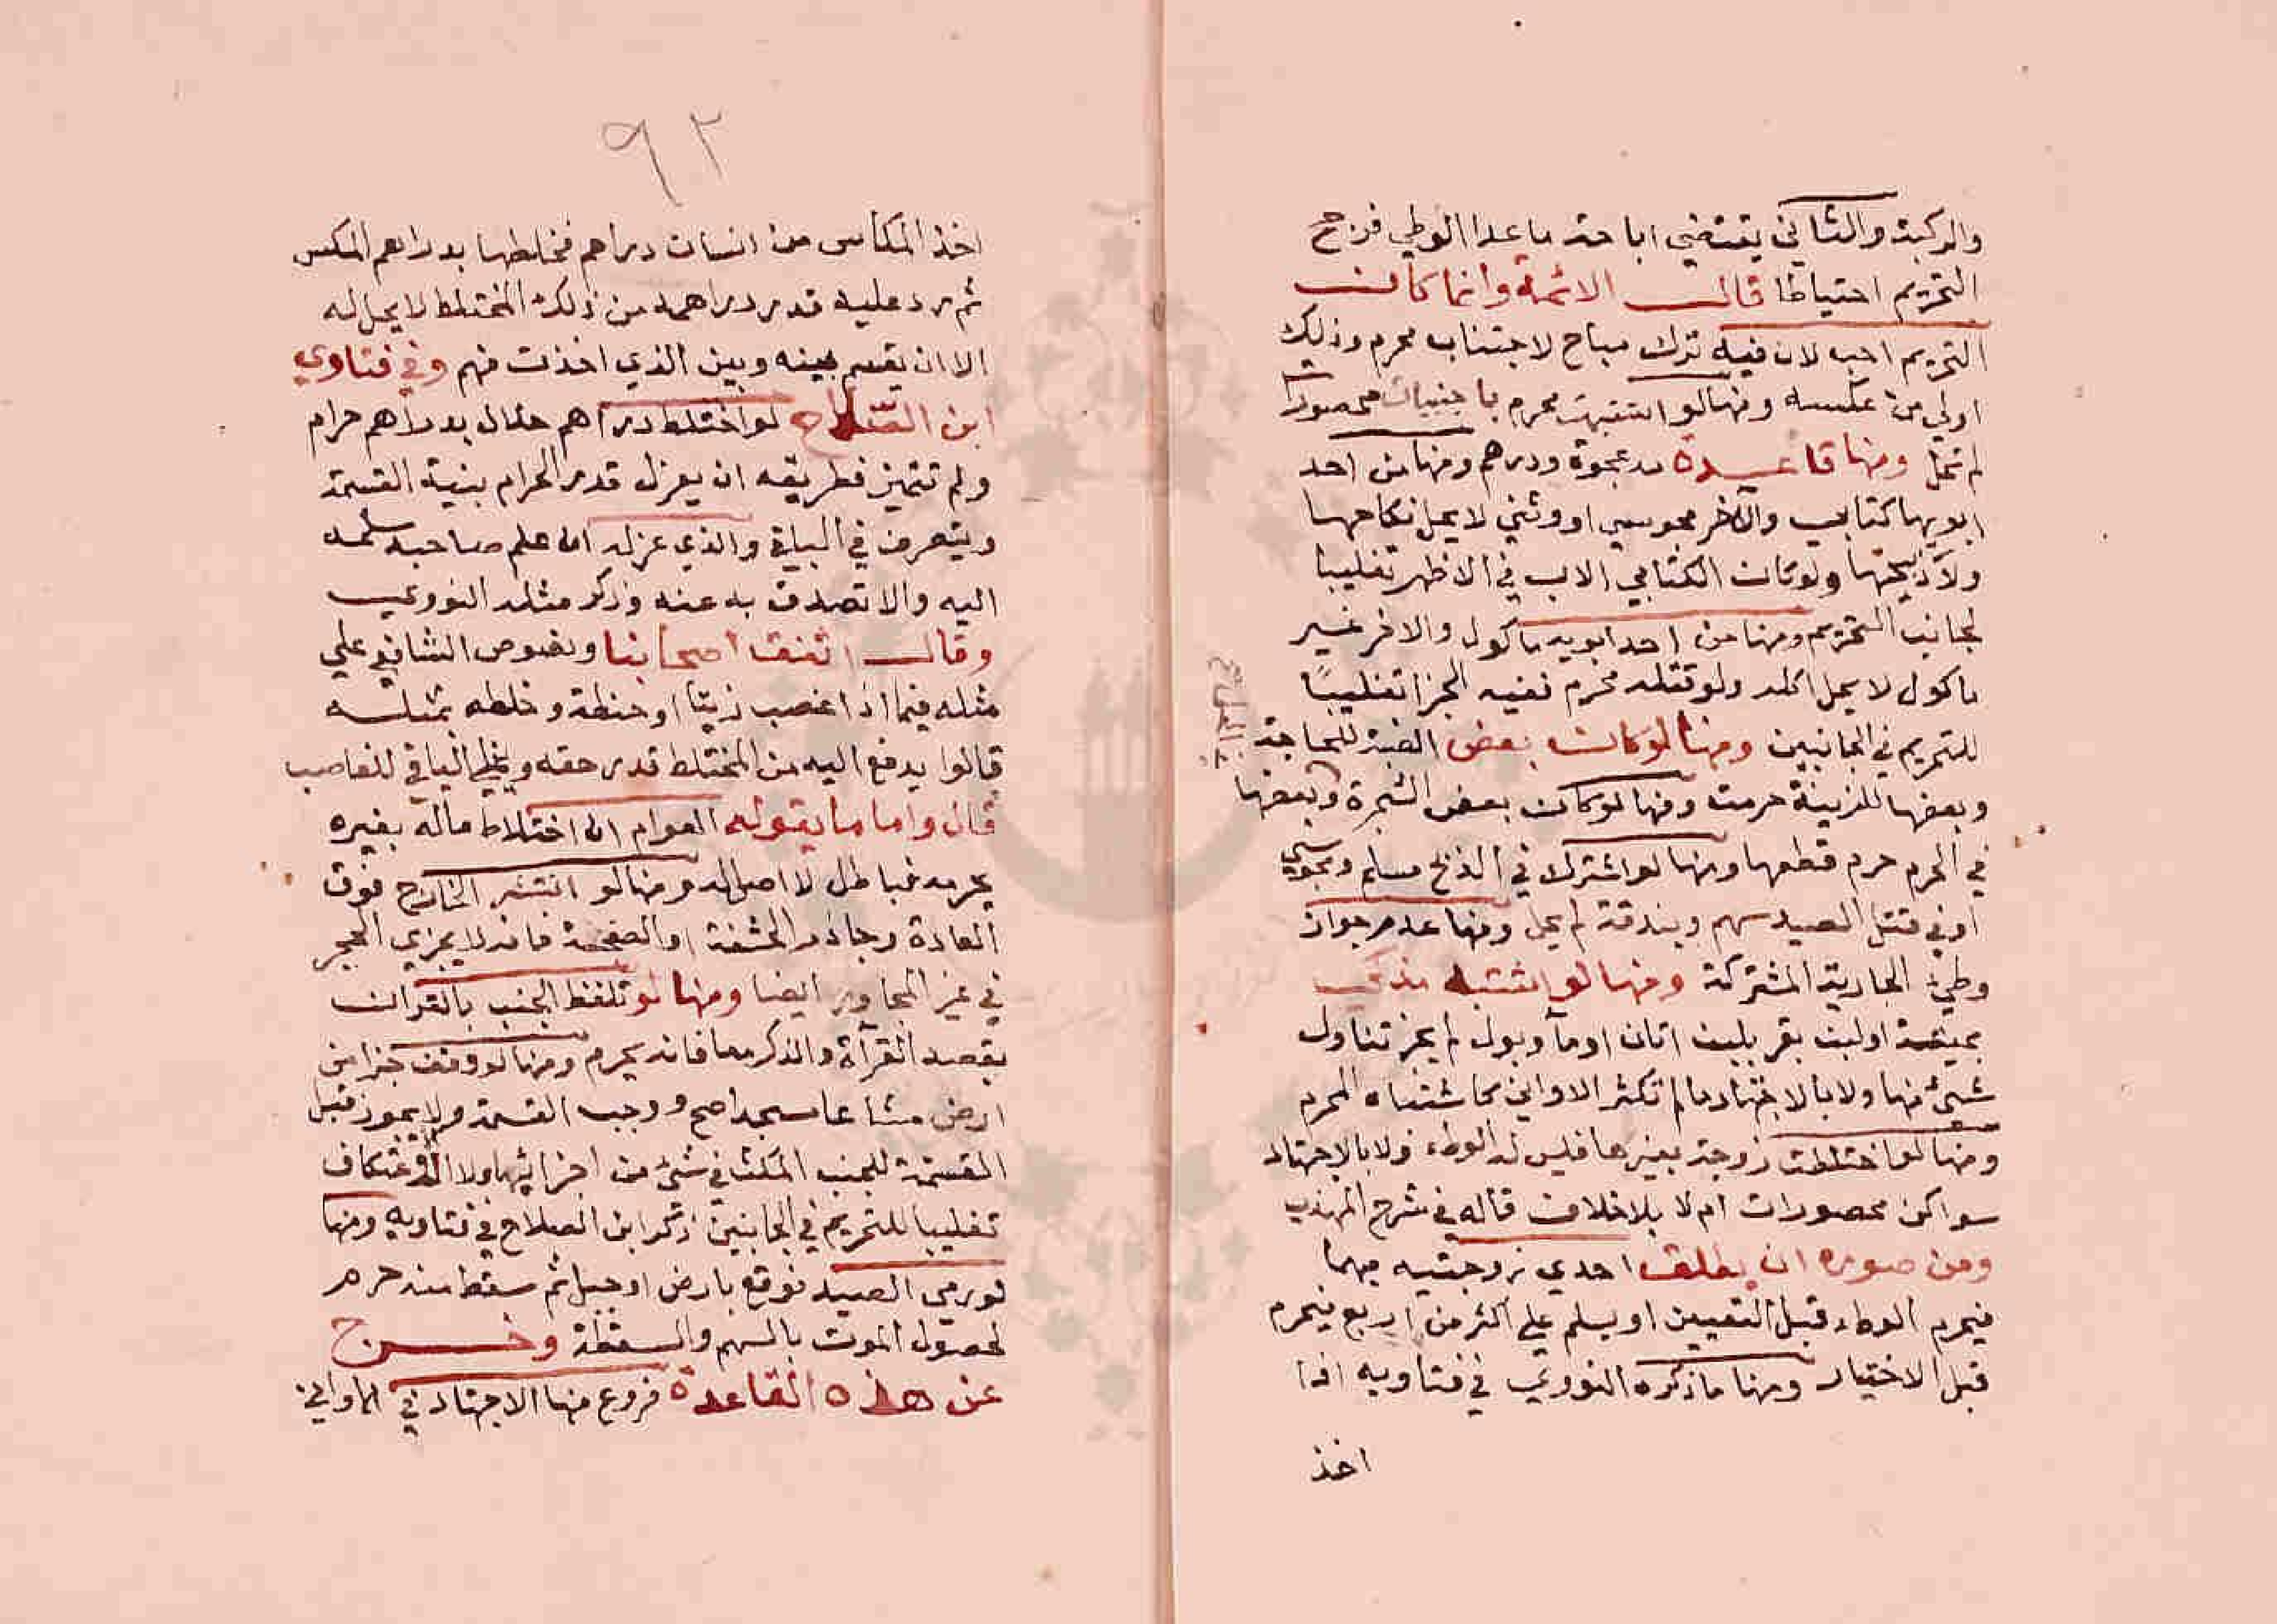 والركبة والثاني يقتضي اباحة ما عدا الوطي فرجح
التحريم احتياطا قالـــ الائمة وانما كانـــ
التحريم احب لان فيه ترك مباح لاجتناب محرم وذلك
اولي من عكسه ومنها لو اشتبهت محرم باجنبيات محصورات
لم تحل ومنها قاعدة مد عجوة ودرهم ومنها من احد
ابويها كتابي والآخر مجوسي او وثني لا يحل نكاحها
ولا ذبيحتها ولو كان الكتابي الاب في الاظهر تغليبا
لجانب التحريم ومنها من احد ابويه ماكول والاخر غير
ماكول لا يحل اكله ولو قتله محرم ففيه الجزا تغليبًا
للتحريم في الجانبين ومنها لو كانت بعض الضبة للحاجة
وبعضها للزينة حرمت ومنها لو كان بعض الشجرة وبعضها
في الحرم حرم قطعها ومنها لو اشترك في الذبح مسلم ومجوسي
او في قتل الصيد سهم وبندقة لم يحل ومنها عدم جواز
وطيء الجارية المشتركة ومنها لو اشتبه مذكي
بميتة او لبن بقر بلبن اتان او مآ وبول لم يجز تناول
شيئ منها ولا بالاجتهاد ما لم تكثر الاواني كاشتباه المحرم
ومنها لو اختلطت زوجة بغيرها فليس له الوطء ولا بالاجتهاد
سوا كن محصورات ام لا بلا خلاف قاله في شرح المهذب
ومن صوره ان يطلق احدي زوجتيه مبهما
فيحرم الوطء قبل التعيين او يسلم علي اكثر من اربع فيحرم
قبل الاختيار ومنها ما ذكره النووي في فتاويه اذا
اخذ
٩٢
اخذ المكاس من انسان دراهم فخلطها بدراهم المكس
ثم رد عليه قدر دراهمه من ذلك المختلط لا يحل له
الا ان يقسم بينه وبين الذي اخذت منهم وفي فتاوي
ابن الصلاح لو اختلط دراهم حلال بدراهم حرام
ولم تتميز فطريقه ان يعزل قدر الحرام بنية القسمة
ويتصرف في الباقي والذي عزله ان علم صاحبه سلمه
اليه والا تصدق به عنه وذكر مثله النووي
وقالـــ اتفق اصحابنا ونصوص الشافعي علي
مثله فيما اذا غصب زيتا او حنطة وخلطه بمثله
قالوا يدفع اليه من المختلط قدر حقه ويحل الباقي للغاصب
قال واما ما يقوله العوام ان اختلاط ماله بغيره
يحرمه فباطل لا اصل له ومنها لو انتشر الخارج فوق
العادة وجاوز الحشفة او الصفحة فانه لا يجزي الحجر
في غير المجاوز ايضا ومنها لو تلفظ الجنب بالقران
بقصد القرآة والذكر معا فانه يحرم ومنها لو وقف جزا من
ارض مشاعا مسجدا صح ووجب القسمة ولا يجوز قبل
القسمة للجنب المكث في شيئ من اجزائها ولا الاعتكاف
تغليبا للتحريم في الجانبين ذكره ابن الصلاح في فتاويه ومنها
لو رمي الصيد فوقع بارض او جبل ثم سقط منه حرم
لحصول الموت بالسهم والسقطة وخـــرج
عن هذه القاعدة فروع منها الاجتهاد في الاواني